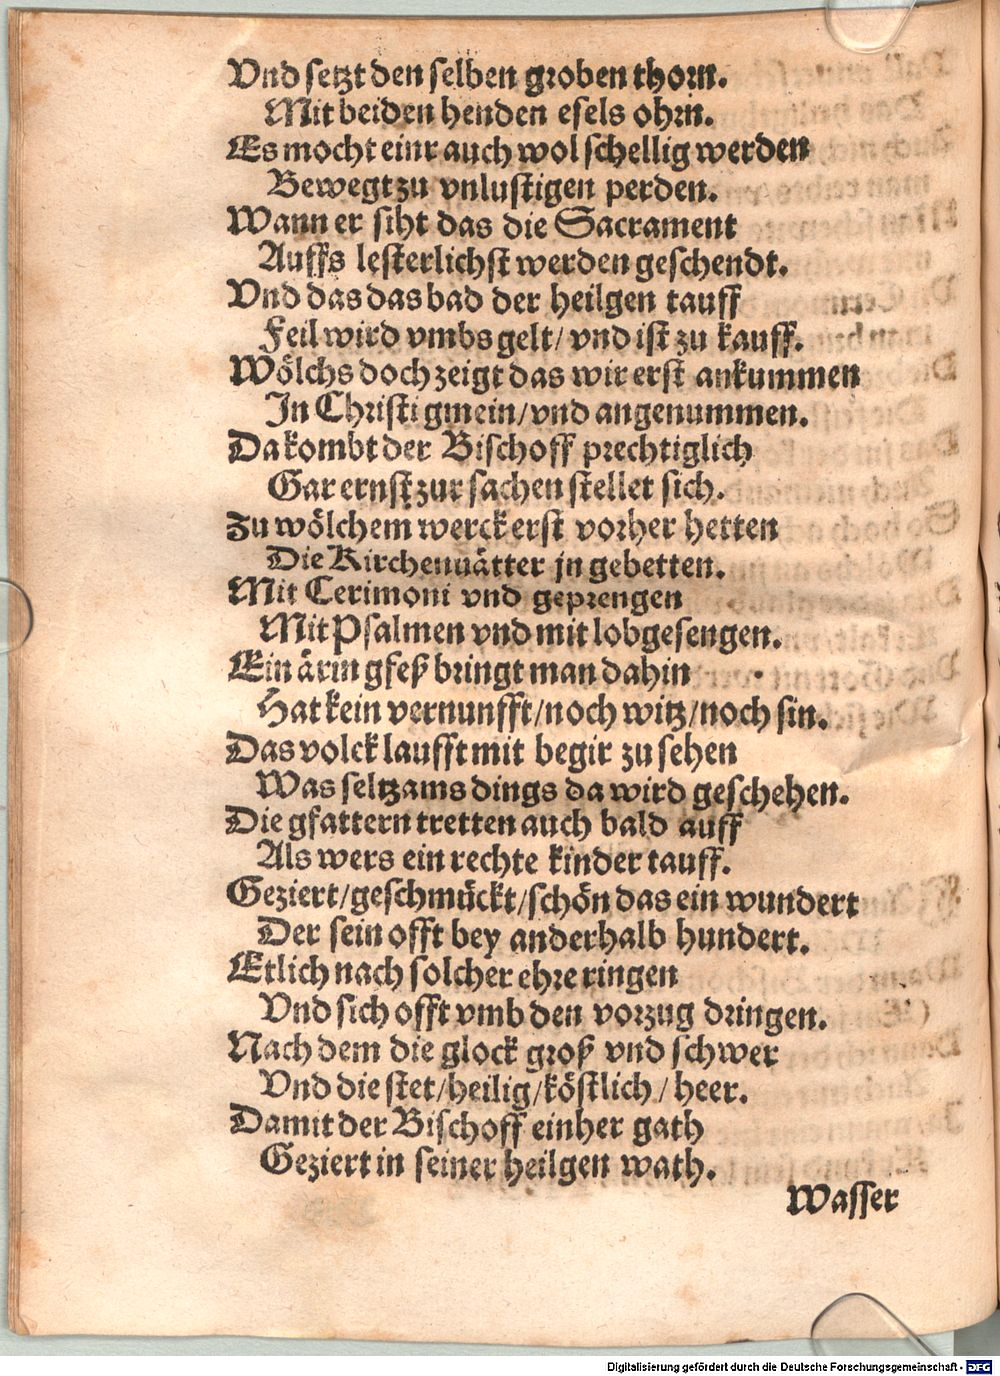 Vnd setzt den selben groben thorn.
Mit beiden henden esels ohrn.
Es mocht einr auch wol schellig werden
Bewegt zu vnlustigen perden.
Wann er siht das die Sacrament
Auffs lesterlichst werden geschendt.
Vnd das das bad der heilgen tauff
Feil wird vmbs gelt/ vnd ist zu kauff.
Wölchs doch zeigt das wir erst ankummen
In Christi gmein/vnd angenummen.
Da kombt der Bischoff prechtiglich
Gar ernst zur sachen stellet sich.
Zu wölchem werck erst vorher hetten
Die Kirchenuätter jn gebetten.
Mit Cerimoni vnd geprengen
Mit Psalmen vnd mit lobgesengen.
Ein ärin gfeß bringt man dahin
Hat kein vernunfft/noch witz/noch sin.
Das volck laufft mit begir zu sehen
Was seltzams dings da wird geschehen.
Die gfattern tretten auch bald auff
Als wers ein rechte kinder tauff.
Geziert/geschmückt/schön das ein wundert
Der sein offt bey anderhalb hundert.
Etlich nach solcher ehre ringen
Vnd sich offt vmb den vorzug dringen.
Nach dem die glock groß vnd schwer
Vnd die stet/heilig/köstlich/ heer.
Damit der Bischoff einher gath
Geziert in seiner heilgen wath.
Wasser
Digitalisierung gefördert durch die Deutsche Forschungsgemeinschaft - DFG